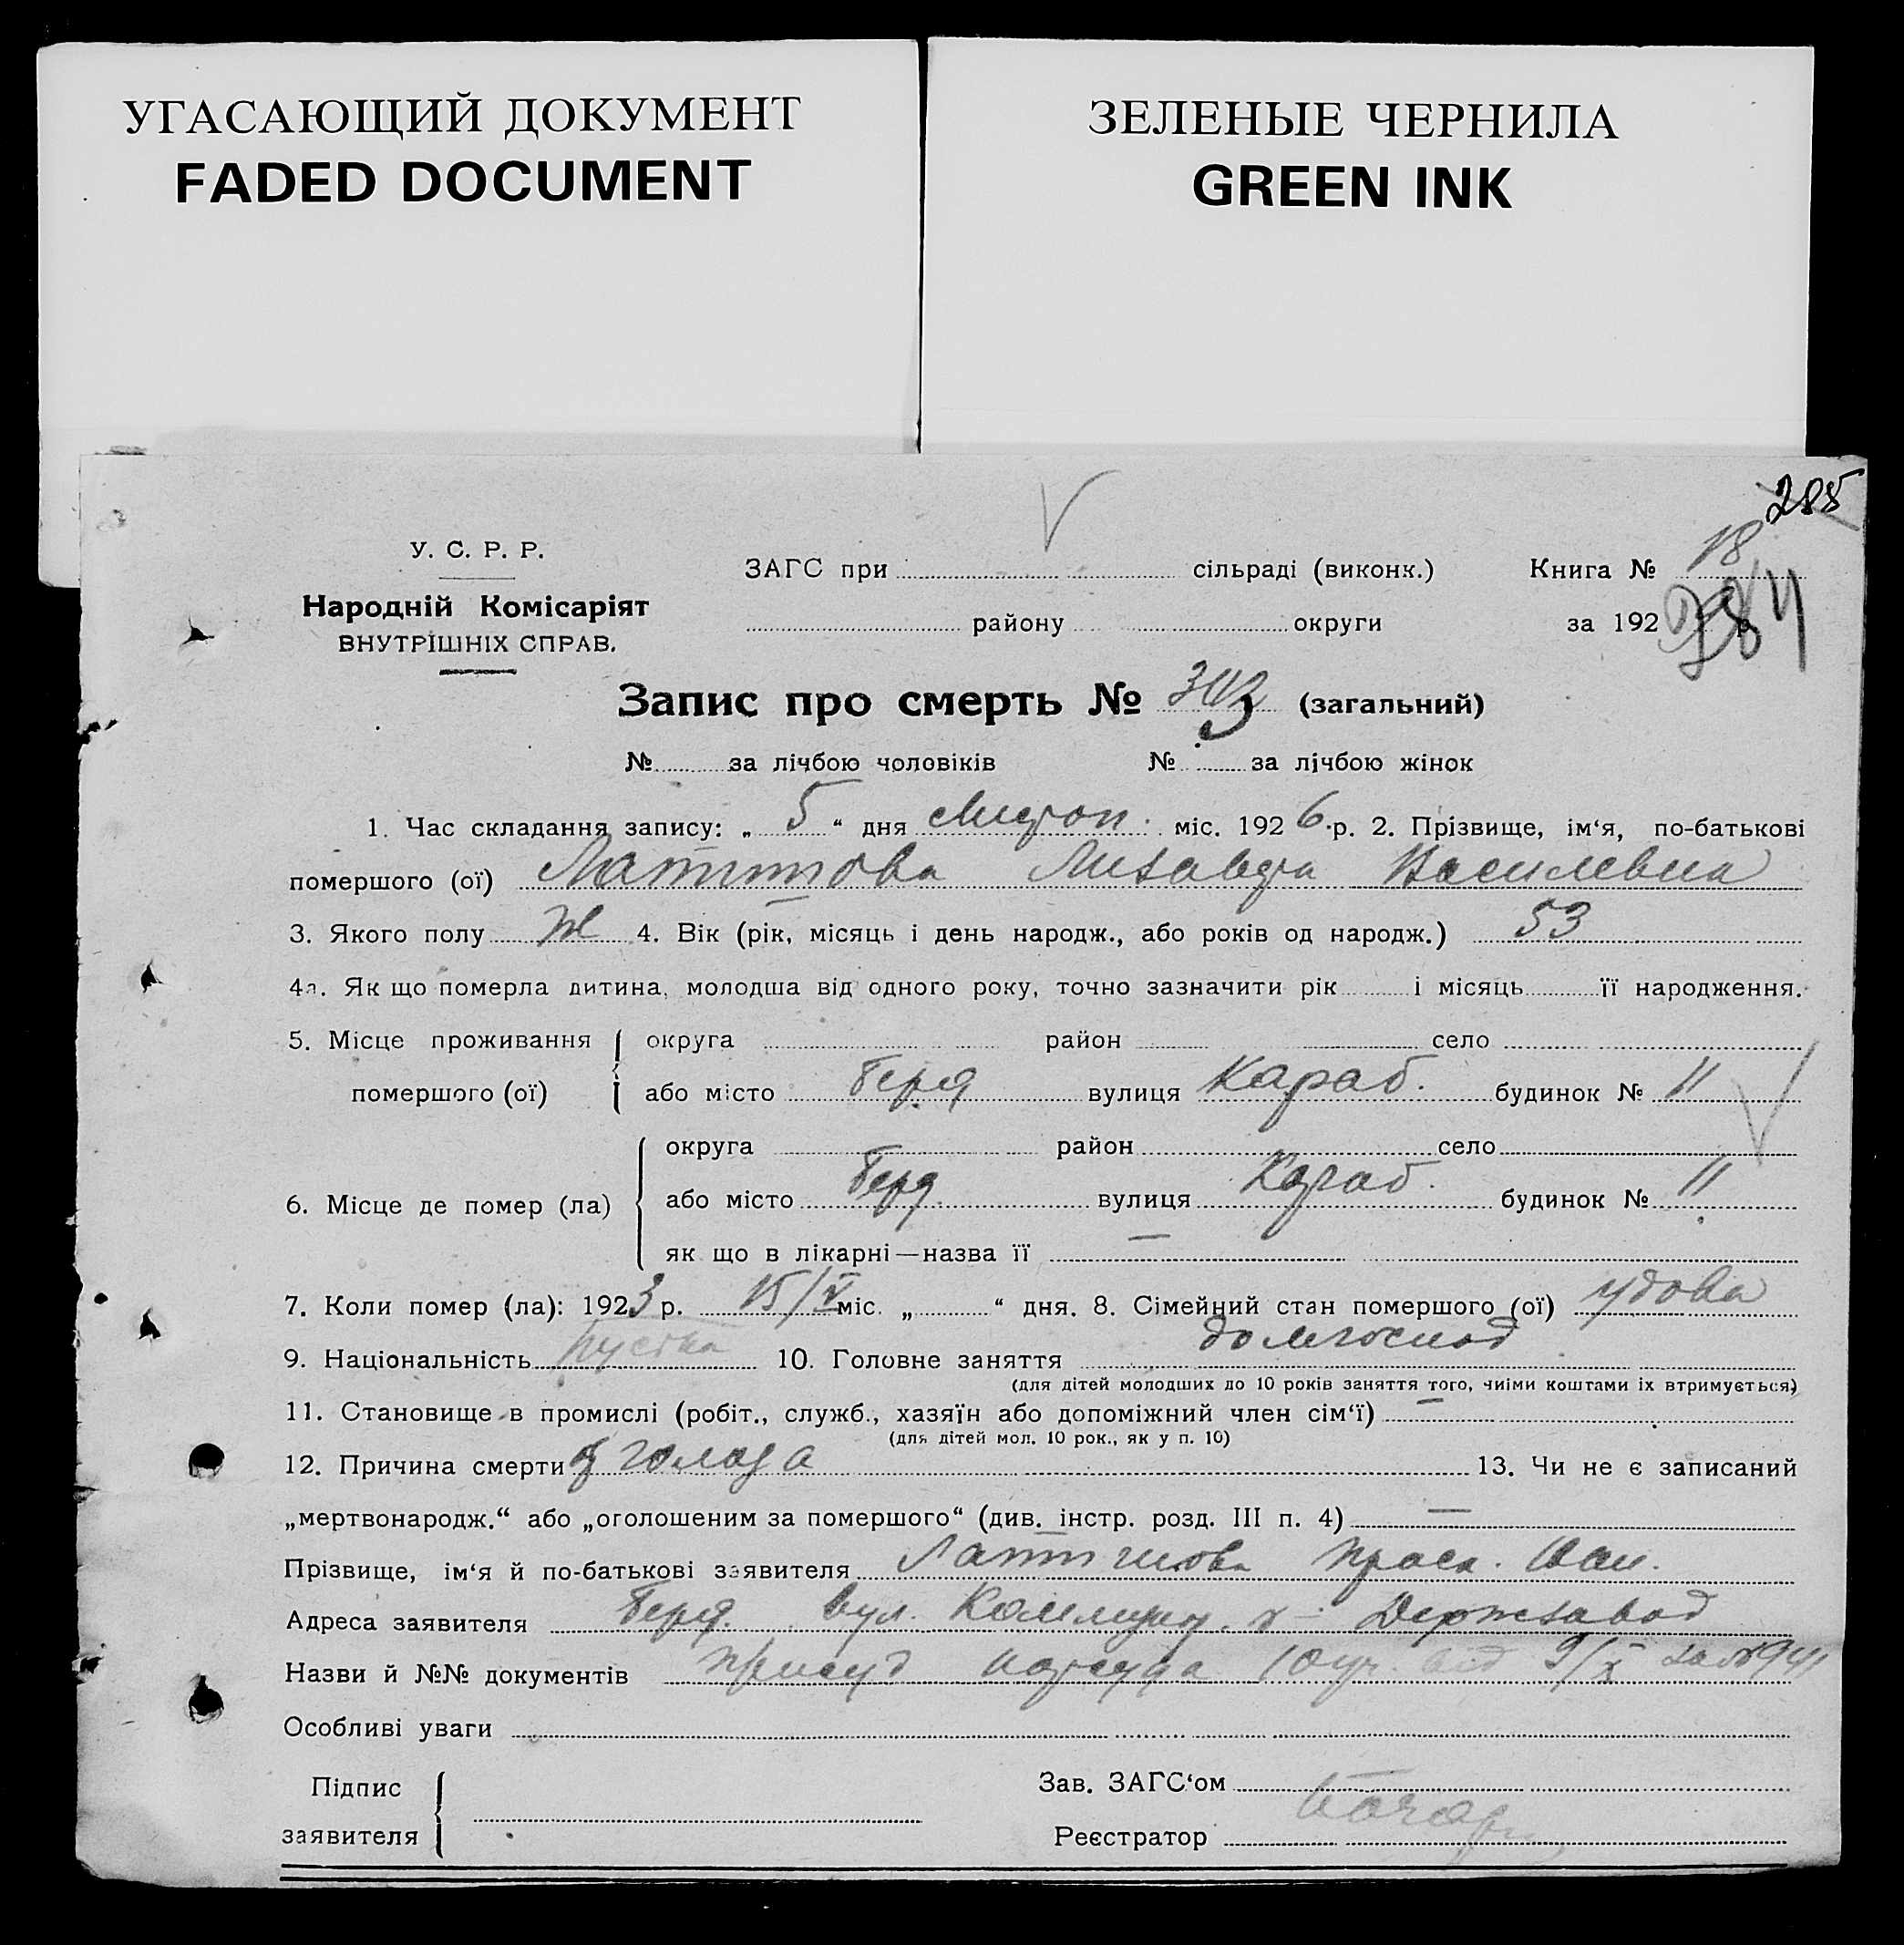 УГАСАЮЩИЙ ДОКУМЕНТ
FADED DOCUMENT
ЗЕЛЕНЫЕ ЧЕРНИЛА
GREEN INK
285
У. С. Р. Р.
Народній Комісаріят
ВНУТРІШНІХ СПРАВ.
ЗАГС при сільраді (виконк.) Книга № 18
району округи за 192
Запис про смерть № 303 (загальний)
№ за лічбою чоловіків № за лічбою жінок
1. Час складання запису: „ 5 “ дня Листоп. міс. 1926 р. 2. Прізвище, ім‘я, по-батькові
помершого (ої) Василевна
3. Якого полу Ж 4. Вік (рік, місяць і день народж., або років од народж.) 53
4а. Як що померла дитина, молодша від одного року, точно зазначити рік і місяць її народження.
5. Місце проживання округа район село
помершого (ої) або місто Берд вулиця Караб. будинок № 11
округа район село
6. Місце де помер (ла) або місто Берд. вулиця Караб. будинок № 11
як що в лікарні—назва її —
7. Коли помер (ла): 1923 р. 15/V міс. „ “ дня. 8. Сімейний стан помершого (ої) удова
9. Національність руська 10. Головне заняття домгоспод
(для дітей молодших до 10 років заняття того, чиїми коштами їх втримується)
11. Становище в промислі (робіт., служб., хазяїн або допоміжний член сім‘ї) —
(для дітей мол. 10 рок., як у п. 10)
12. Причина смерти з голода 13. Чи не є записаний
„мертвонародж.“ або „оголошеним за помершого“ (див. інстр. розд. III п. 4) —
Прізвище, ім‘я й по-батькові заявителя Праск.
Адреса заявителя Берд. вул. Державод
Назви й №№ документів Присуд нарсуда 10 уч. від 9/X за № 941
Особливі уваги
Підпис
заявителя
Зав. ЗАГС‘ом
Реєстратор